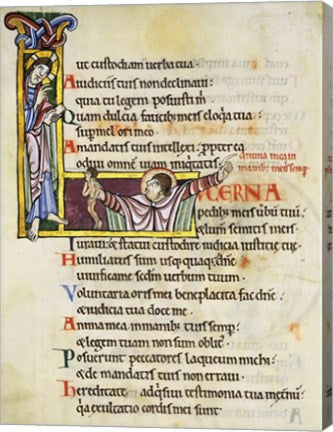 ut custodiam uerba tua:
A iudiciis tuis non declinaui:
quia tu legem posuisti m̄
Quam dulcia faucib; meis eloq̄a tua:
sup mel ori meo
A mandatis tuis intellexi: ppterea
odiui omnē uiam iniq̄tatis:
anima mea in
manib; meis semp
LUCERNA
pedib; meis ūbū tuū:
& lumen semitis meis
Iuraui: & statui custodire iudicia iusticię tuę:
Humiliatus sum usq; quaq; dn̄e:
uiuifica me scdm̄ uerbum tuum:
Voluntaria oris mei beneplacita fac dn̄e:
& iudicia tua doce me
Anima mea in manib; tuis semp:
& legem tuam non sum oblit'
Posuerunt peccatores laqueum michi:
& de mandatis tuis non erraui
hereditate adq̄siui testimonia tua
q̄a exultatio cordis mei sunt